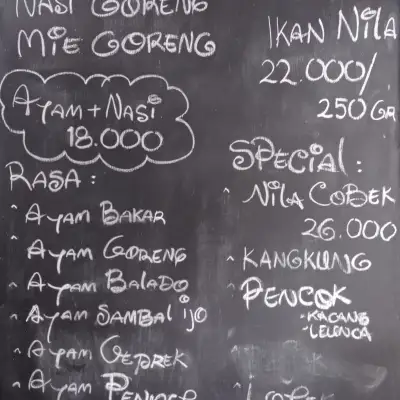 NASI GORENG
MIE GORENG
AYAM + NASI
18.000
RASA :
^ AYAM BAKAR
^ AYAM GORENG
^ AYAM BALADO
^ AYAM SAMBAL IJO
^ AYAM GEPREK
^ AYAM
IKAN NILA
22.000/
250 GR
SPECIAL :
^ NILA COBEK
26.000
^ KANGKUNG
^ PENCOK
- KACANG
- LELENCA